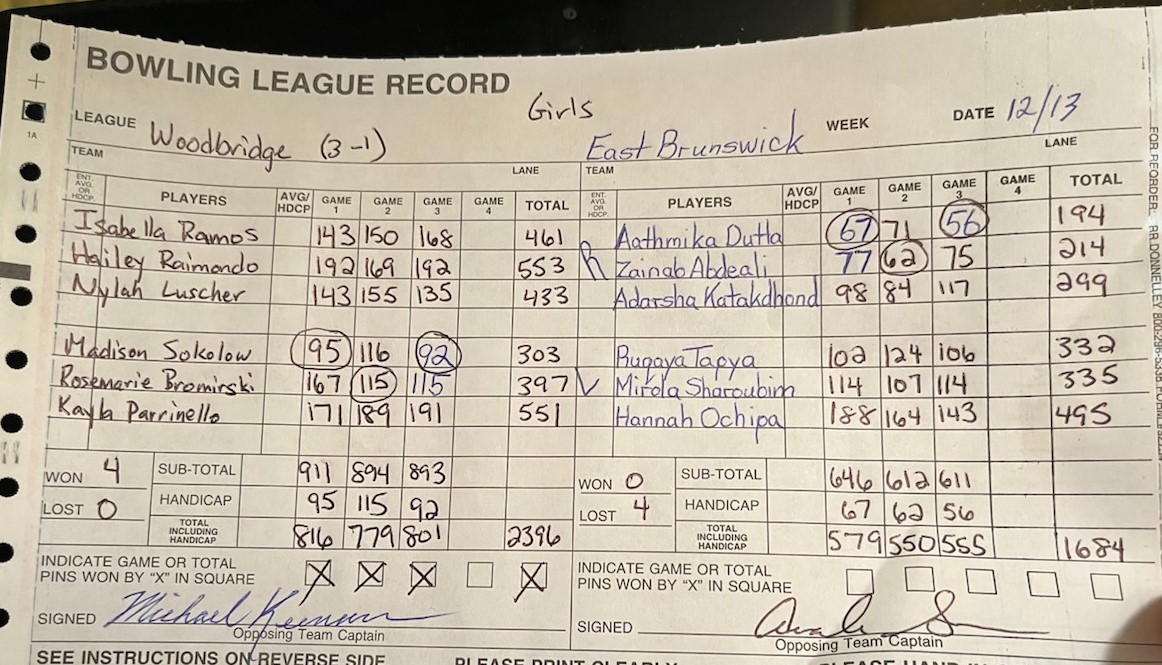 BOWLING LEAGUE RECORD
Girls
LEAGUE Woodbridge (3-1) East Brunswick WEEK DATE 12/13
1A
TEAM LANE TEAM LANE
ENT. AVG. OR HDCP. PLAYERS AVG/HDCP GAME 1 GAME 2 GAME 3 GAME 4 TOTAL ENT. AVG. OR HDCP. PLAYERS AVG/HDCP GAME 1 GAME 2 GAME 3 GAME 4 TOTAL
Isabella Ramos 143 150 168 461 Aathmika Dutta 67 71 56 194
Hailey Raimondo 192 169 192 553 R Zainab Abdeali 77 62 75 214
Nylah Luscher 143 155 135 433 Adarsha Katakdhond 98 84 117 299
Madison Sokolow 95 116 92 303 Rugaya Tapya 102 124 106 332
Rosemarie Bromirski 167 115 115 397 V Mirola Sharoubim 114 107 114 335
Kayla Parrinello 171 189 191 551 Hannah Ochipa 188 164 143 495
WON 4 SUB-TOTAL 911 894 893 WON 0 SUB-TOTAL 646 612 611
LOST 0 HANDICAP 95 115 92 LOST 4 HANDICAP 67 62 56
TOTAL INCLUDING HANDICAP 816 779 801 2396 TOTAL INCLUDING HANDICAP 579 550 555 1684
INDICATE GAME OR TOTAL PINS WON BY "X" IN SQUARE X X X X INDICATE GAME OR TOTAL PINS WON BY "X" IN SQUARE
SIGNED Michael Keenan SIGNED
Opposing Team Captain Opposing Team Captain
SEE INSTRUCTIONS ON REVERSE SIDE PLEASE PRINT CLEARLY
FOR REORDER: RR DONNELLEY